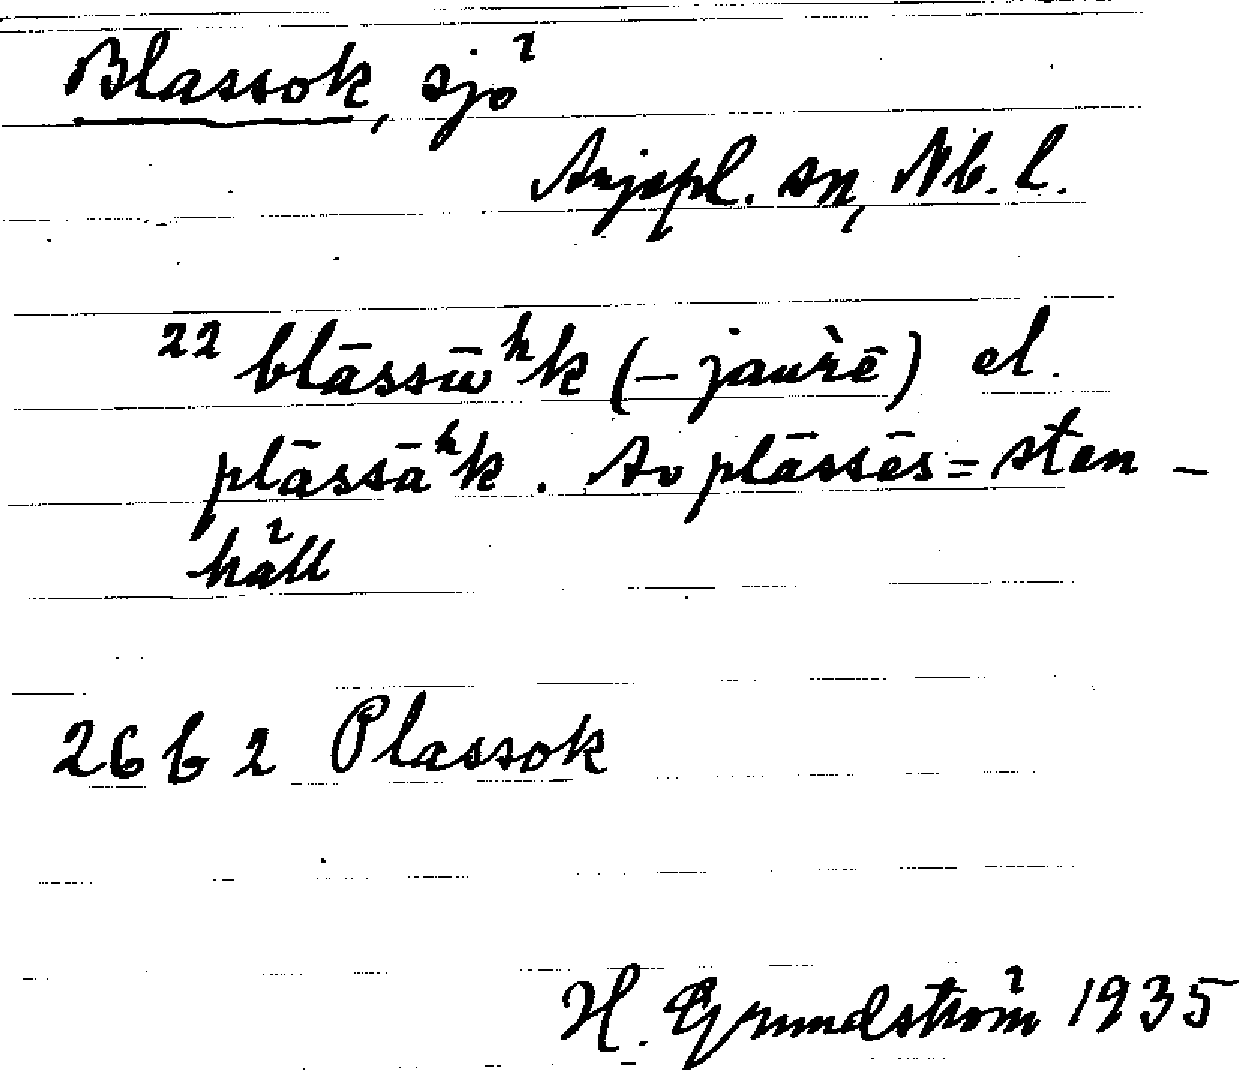 Blassok, sjö
Arjepl. sn, Nb. l.
22 blāssūʰk (– jaurē) el.
plāssāʰk. Av plāssēs = sten-
häll
26 b 2 Plassok
H. Grundström 1935